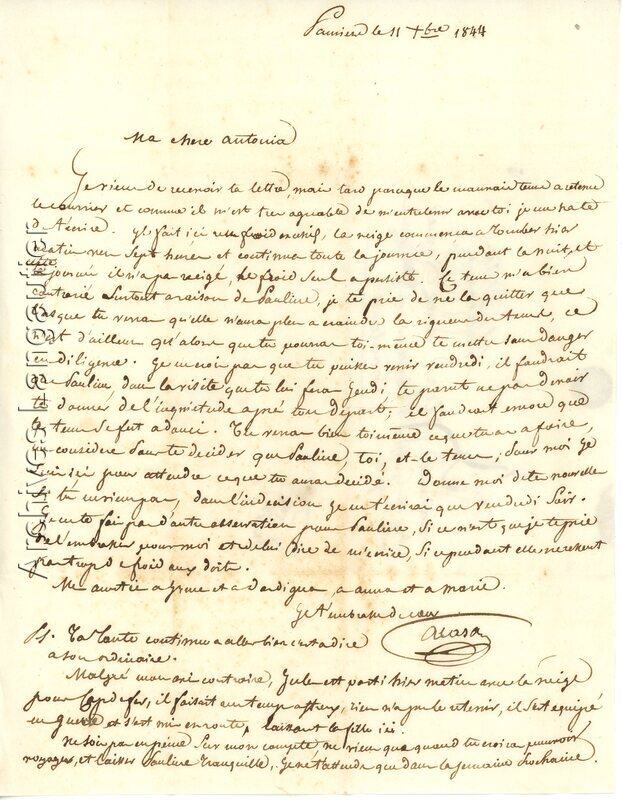 Pamiers le 11 Xbre 1844
Ma chere antonia
Je viens de recevoir ta lettre, mais tard parceque le mauvais tems a retenu
le courrier et comme il m'est tres agréable de m'entretenir avec toi je me hate
de t'écrire. Il fait ici un froid excessif, la neige commença a tomber hier
matin vers sept heures et continua toute la journée, pendant la nuit et
aujourd'hui il n'a pas neigé, le froid seul a persisté. Ce tems m'a bien
contrarié surtout a raison de Pauline, je te prie de ne la quitter que
lorsque tu verras qu'elle n'aura plus a craindre la rigueur du tems, ce
n'est d'ailleurs qu'alors que tu pourras toi-même te mettre sans danger
en diligence. Je ne crois pas que tu puisses venir vendredi, il faudrait
que Pauline dans la visite que tu lui feras Jeudi, te parut ne pas devoir
te donner de l'inquiétude après ton départ; il faudrait encore que
le tems se fut adouci. Tu verras bien toi même ce que tu as a faire,
ne considère pour te décider que Pauline, toi, et le tems; pour moi je
suis ici pour attendre ce que tu auras décidé. Donne moi de tes nouvelles
si tu ne viens pas, dans l'indécision je ne t'écrirai que vendredi soir.
Je ne te fais pas d'autre observation pour Pauline, si ce n'est que je te prie
de l'embrasser pour moi et de lui dire de m'écrire, si cependant elle ne ressent
pas trop de froid aux doits.
Mes amitiés a et a Dardigna, a anna et a marie.
Je t'embrasse de cœur
Ps. Ta Tante continue a aller bien c'est a dire
a son ordinaire.
Malgré mon avis contraire, Jules est parti hier matin avec la neige
pour Capdefer, il faisait un temps affreux, rien n'a pu le retenir, il s'est équipé
en guerre et s'est mis en route, laissant la fille ici.
ne sois pas en peine sur mon compte ne viens que quand tu croiras pouvoir
voyager, et laisser Pauline tranquille. Je ne t'attends que dans la semaine prochaine.